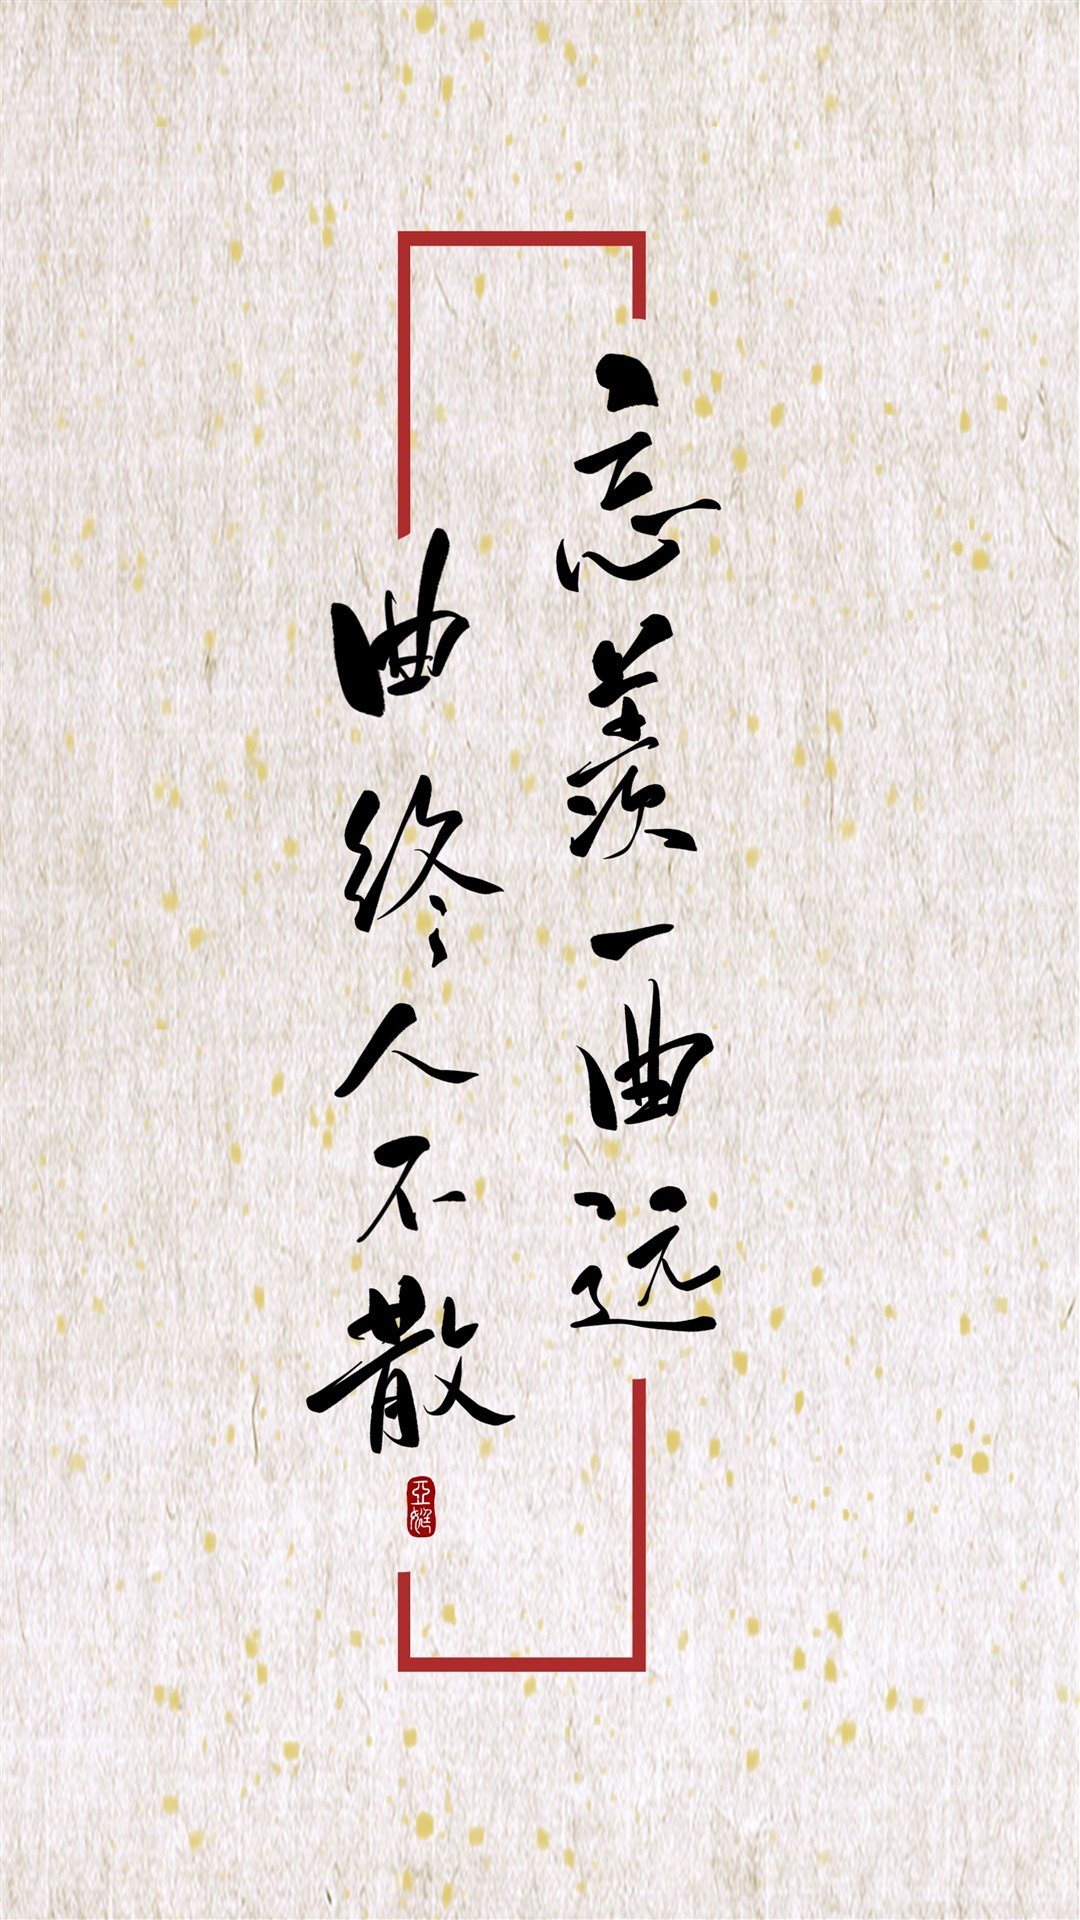 忘羡一曲远
曲终人不散